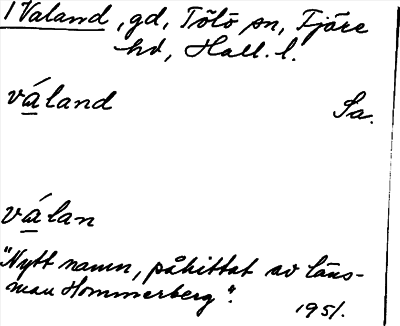 1 Valand, gd, Tölö sn, Fjäre
hd, Hall. l.
váland Sa.
válan
"Nytt namn, påhittat av läns-
man Hommerberg".
1951.